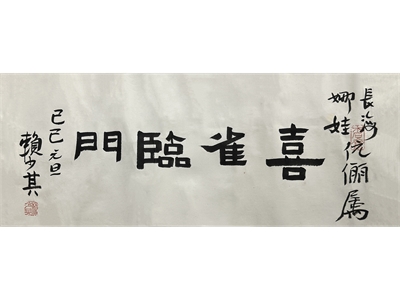 長海
娜娃伉儷属
喜雀臨門
己巳元旦
賴少其